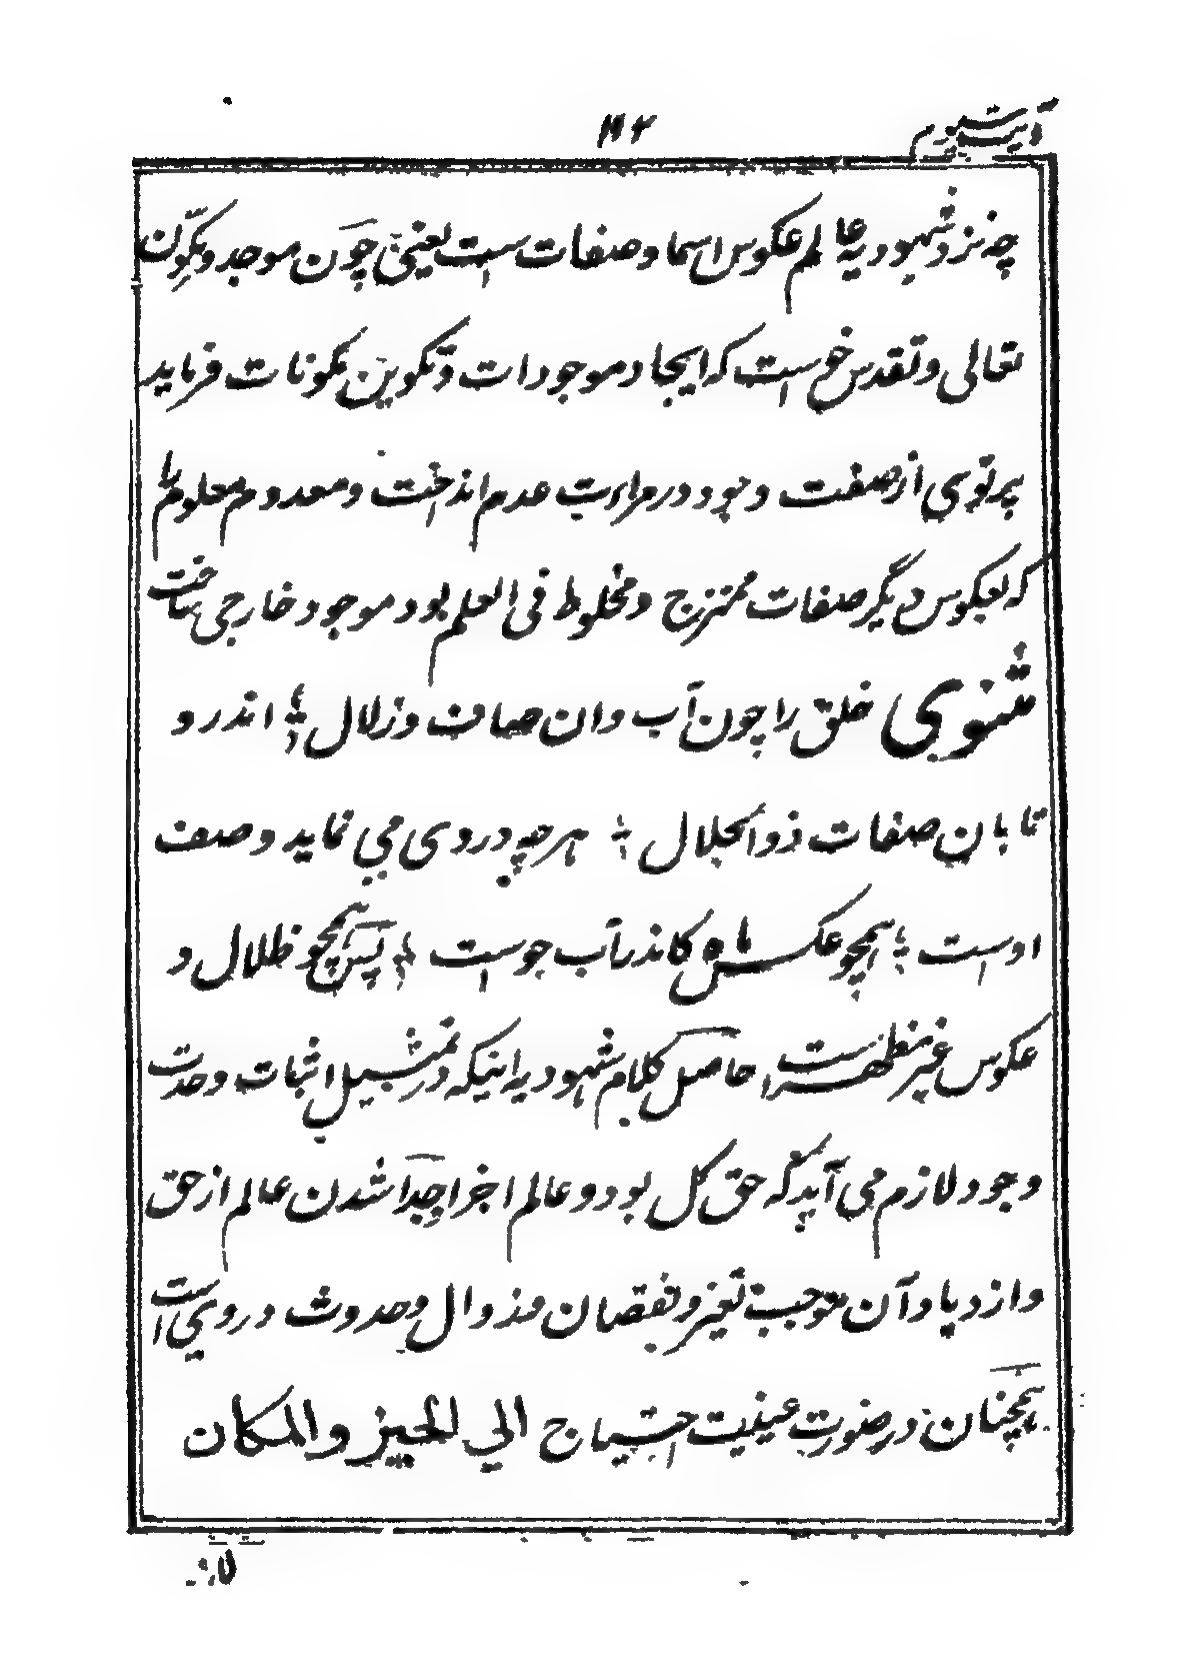 ۱۹۲
چه نزد شهودیه عالم عکوس اسما و صفات ست یعنی چون موجد و مکون
تعالی و تقدس خواست که ایجاد موجودات و تکوین مکونات فرماید
پرتوی از صفت وجود در مراءت عدم انداخت و معدوم معلوم را
که بعکوس دیگر صفات ممتزج و مخلوط فی العلم بود موجود خارجی ساخت
مثنوی خلق را چون آب دان صاف و زلال ؛ اندر و
تابان صفات ذوالجلال ؛ هرچه در وی می نماید وصف
اوست ؛ همچو عکس ماه کاندر آب جوست ؛ پس همچو ظلال و
عکوس غیر مظهر است حاصل کلام شهودیه اینکه در تمثیل اثبات وحدت
وجود لازم می آید که حق کل بود و عالم اجزا جدا شدن عالم از حق
و ازدیاد آن موجب تغیر و نقصان و زوال و حدوث در وی است
همچنان در صورت عینیت احتیاج الی الحیز والمکان